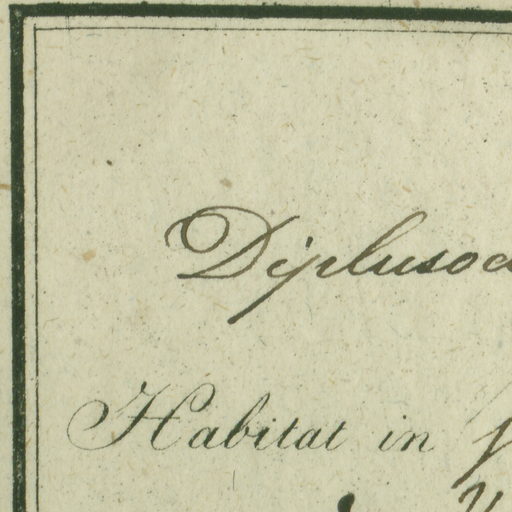 Diplusod
Habitat in